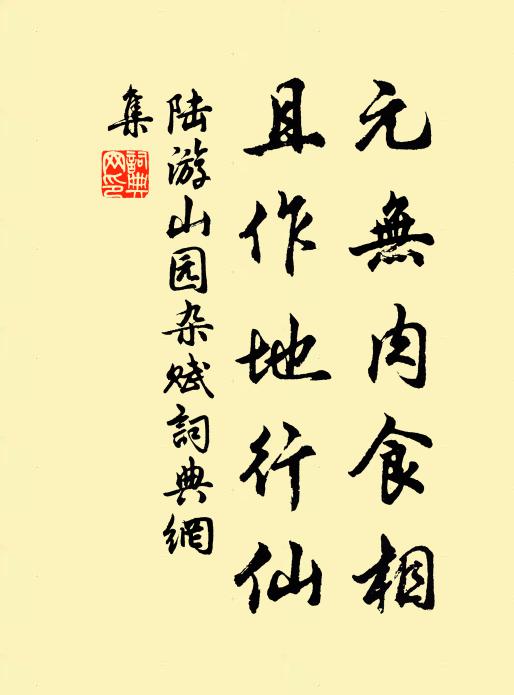 元無肉食相
且作地行仙
陆游山园杂赋詞典網
集
詞典
网印